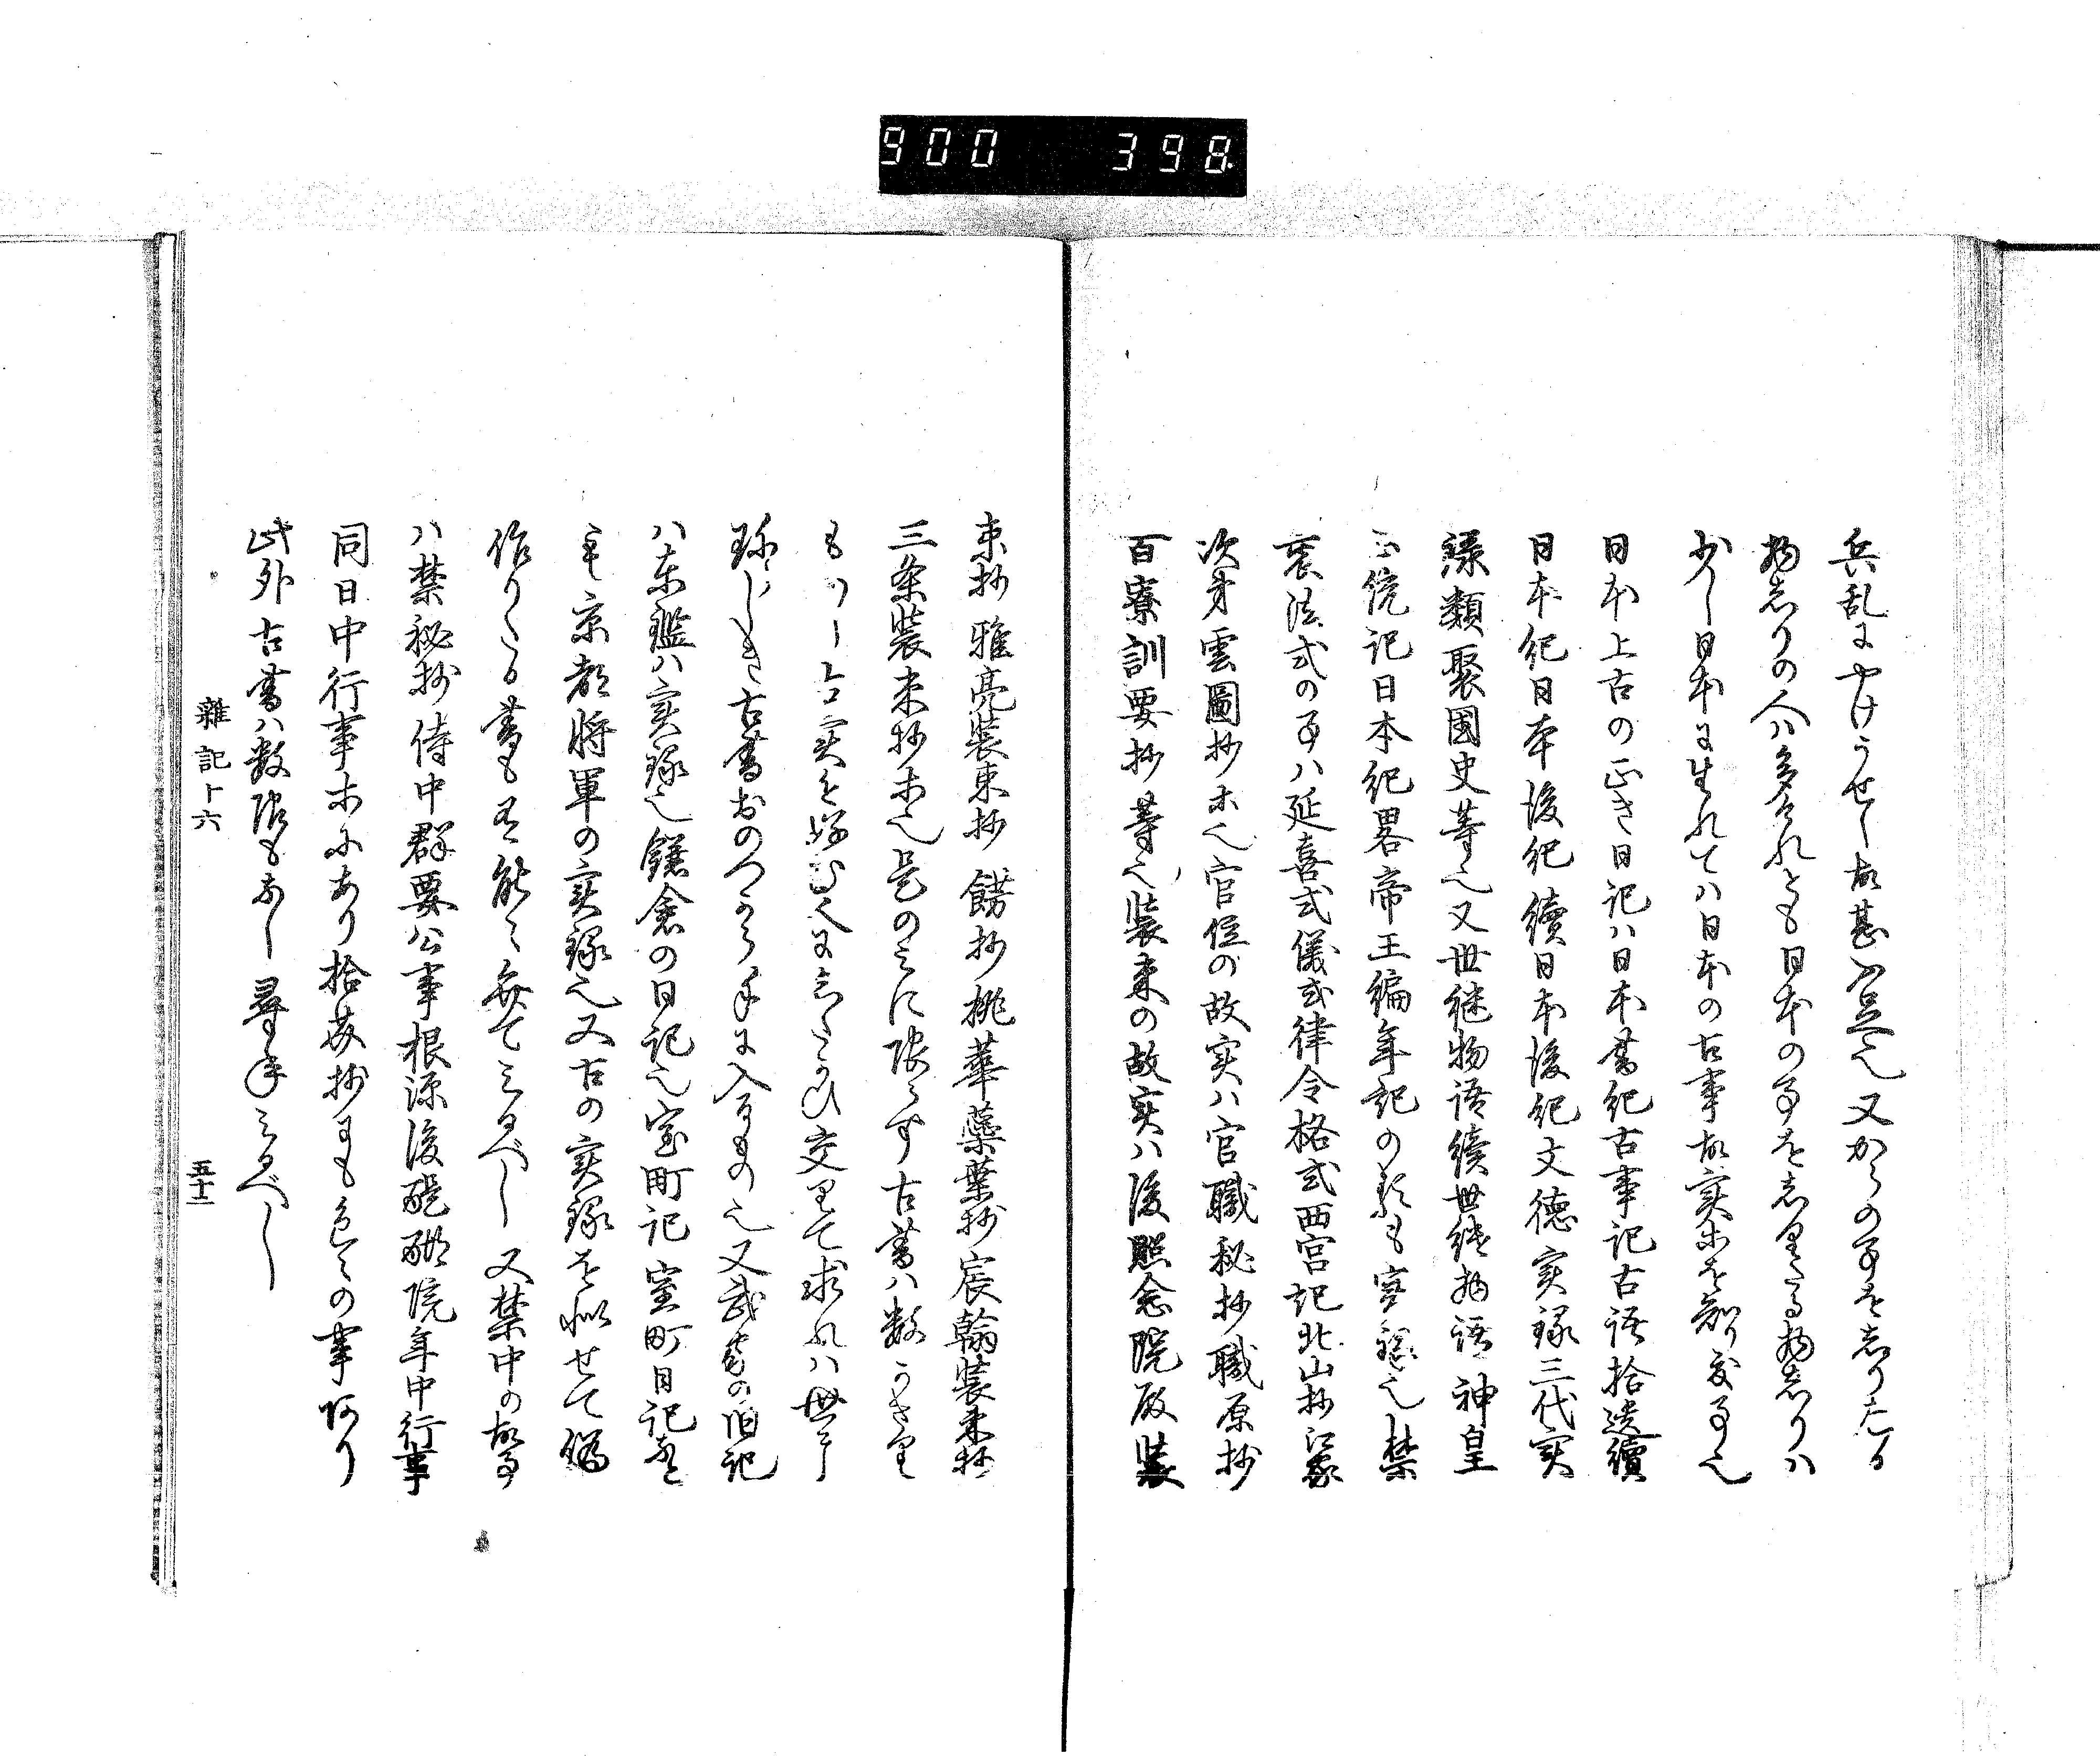 900 398
兵乱にやけうせし故甚少き也又からの事を志りたる
物志りの人ハ多けれとも日本の事を志りたる物志りハ
少し日本に生れてハ日本の古事故実等を知り度事也
日本上古の正き日記ハ日本書紀古事記古語拾遺續
日本紀日本後紀續日本後紀文徳実録三代実
録類聚國史等也又世継物語續世継物語神皇
正統記日本紀畧帝王編年記の類も実録也禁
裏法式の事ハ延喜式儀式律令格式西宮記北山抄江家
次第雲圖抄等也官位の故実ハ官職秘抄職原抄
百寮訓要抄等也装束の故実ハ後照念院殿装
束抄雅亮装束抄餝抄桃華蘂葉抄宸翰装束抄
三条装束抄等也是のミに限らす古書ハ数多き
もの也古実を好む人に志たかひ交りて求れハ世に
珍しき古書おのつから手に入るもの也又武家の旧記
ハ東鑑ハ実録也鎌倉の日記也室町記室町日記等
も京都将軍の実録也又古の実録を似せて偽
作りたる書も有能々弁てミるべし又禁中の故事
ハ禁秘抄侍中群要公事根源後醍醐院年中行事
同日中行事等にあり拾芥抄にも色々の事あり
此外古書ハ数限もなし尋求ミるべし
雜記十六
五十二